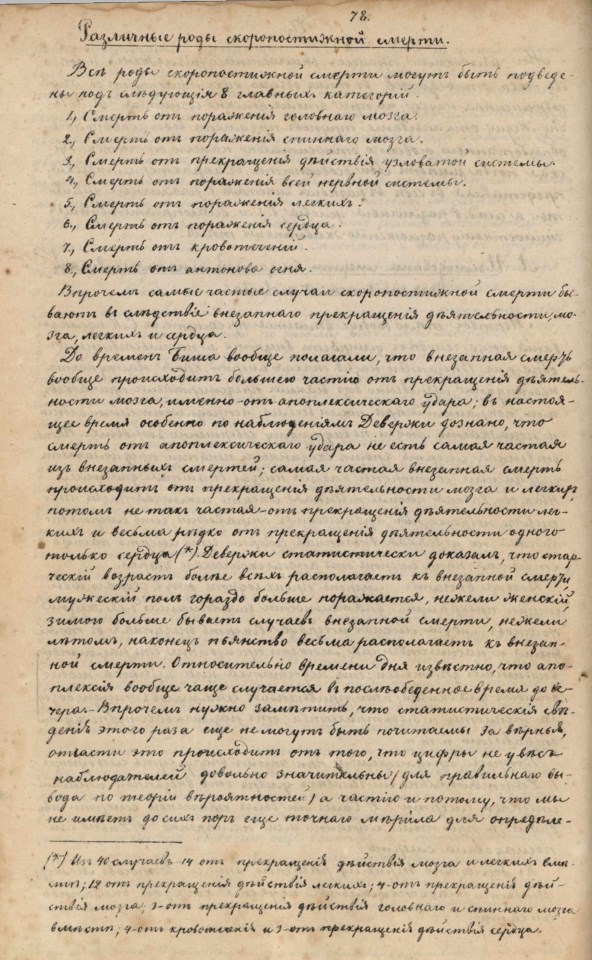 78.
Различные роды скоропостижной смерти.
Всѣ роды скоропостижной смерти могутъ быть подведе-
ны подъ слѣдующія 8 главныхъ категорій.
1, Смерть отъ пораженія головнаго мозга.
2, Смерть отъ пораженія спиннаго мозга.
3, Смерть отъ прекращенія дѣйствія узловатой системы.
4, Смерть отъ пораженія всей нервной системы.
5, Смерть отъ пораженія легкихъ.
6, Смерть отъ пораженія сердца.
7, Смерть отъ кровотеченій.
8, Смерть отъ антонова огня.
Впрочемъ самые частые случаи скоропостижной смерти бы-
ваютъ вслѣдствіе внезапнаго прекращенія дѣятельности, мо-
зга, легкихъ и сердца.
До временъ Биша вообще полагали, что внезапная смерть
вообще происходитъ большею частію отъ прекращенія дѣятель-
ности мозга, именно-отъ апоплексическаго удара; въ настоя-
щее время особенно по наблюденіямъ Девержи дознано, что
смерть отъ апоплексическаго удара не есть самая частая
изъ внезапныхъ смертей; самая частая внезапная смерть
происходитъ отъ прекращенія дѣятельности мозга и легкихъ
потомъ не такъ частая-отъ прекращенія дѣятельности лег-
кихъ и весьма рѣдко отъ прекращенія дѣятельности одного
только сердца (*). Девержи статистически доказалъ, что стар-
ческій возрастъ болѣе всѣхъ располагаетъ къ внезапной смерти
мужескій полъ гораздо больше поражается, нежели женскій,
зимою больше бываетъ случаевъ внезапной смерти, нежели
лѣтомъ, наконецъ пьянство весьма располагаетъ къ внезап-
ной смерти. Относительно времени дня извѣстно, что апо-
плексія вообще чаще случается въ послѣобеденное время до ве-
чера.-Впрочемъ нужно замѣтить, что статистическія свѣ-
денія этого раза еще не могутъ быть почитаемы за вѣрныя,
отчасти это происходитъ отъ того, что цифры не у всѣхъ
наблюдателей довольно значительны (для правильнаго вы-
вода по теоріи вѣроятностей) а частію и потому, что мы
не имѣемъ до сихъ поръ еще точнаго мѣрила для опредѣле-
(*) Изъ 40 случаевъ-14 отъ прекращенія дѣйствія мозга и легкихъ вмѣ-
стѣ; 12 отъ прекращенія дѣйствія легкихъ; 4-отъ прекращенія дѣй-
ствія мозга; 3-отъ прекращенія дѣйствія головнаго и спиннаго мозга
вмѣстѣ; 4-отъ кровотеченія и 3-отъ прекращенія дѣйствія сердца.